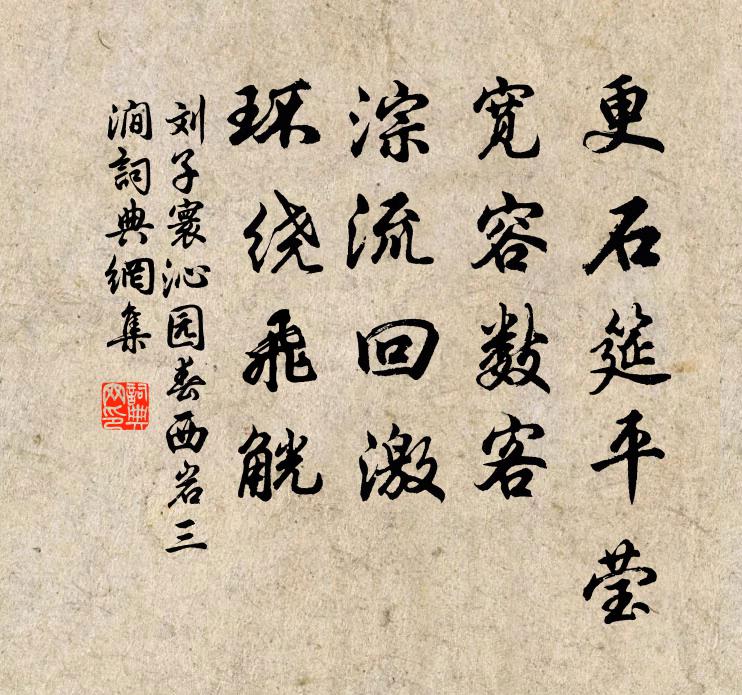 更石筵平莹
宽容数客
淙流回激
环绕飞觥
刘子寰沁园春西岩三
涧词典网集
詞典
网印